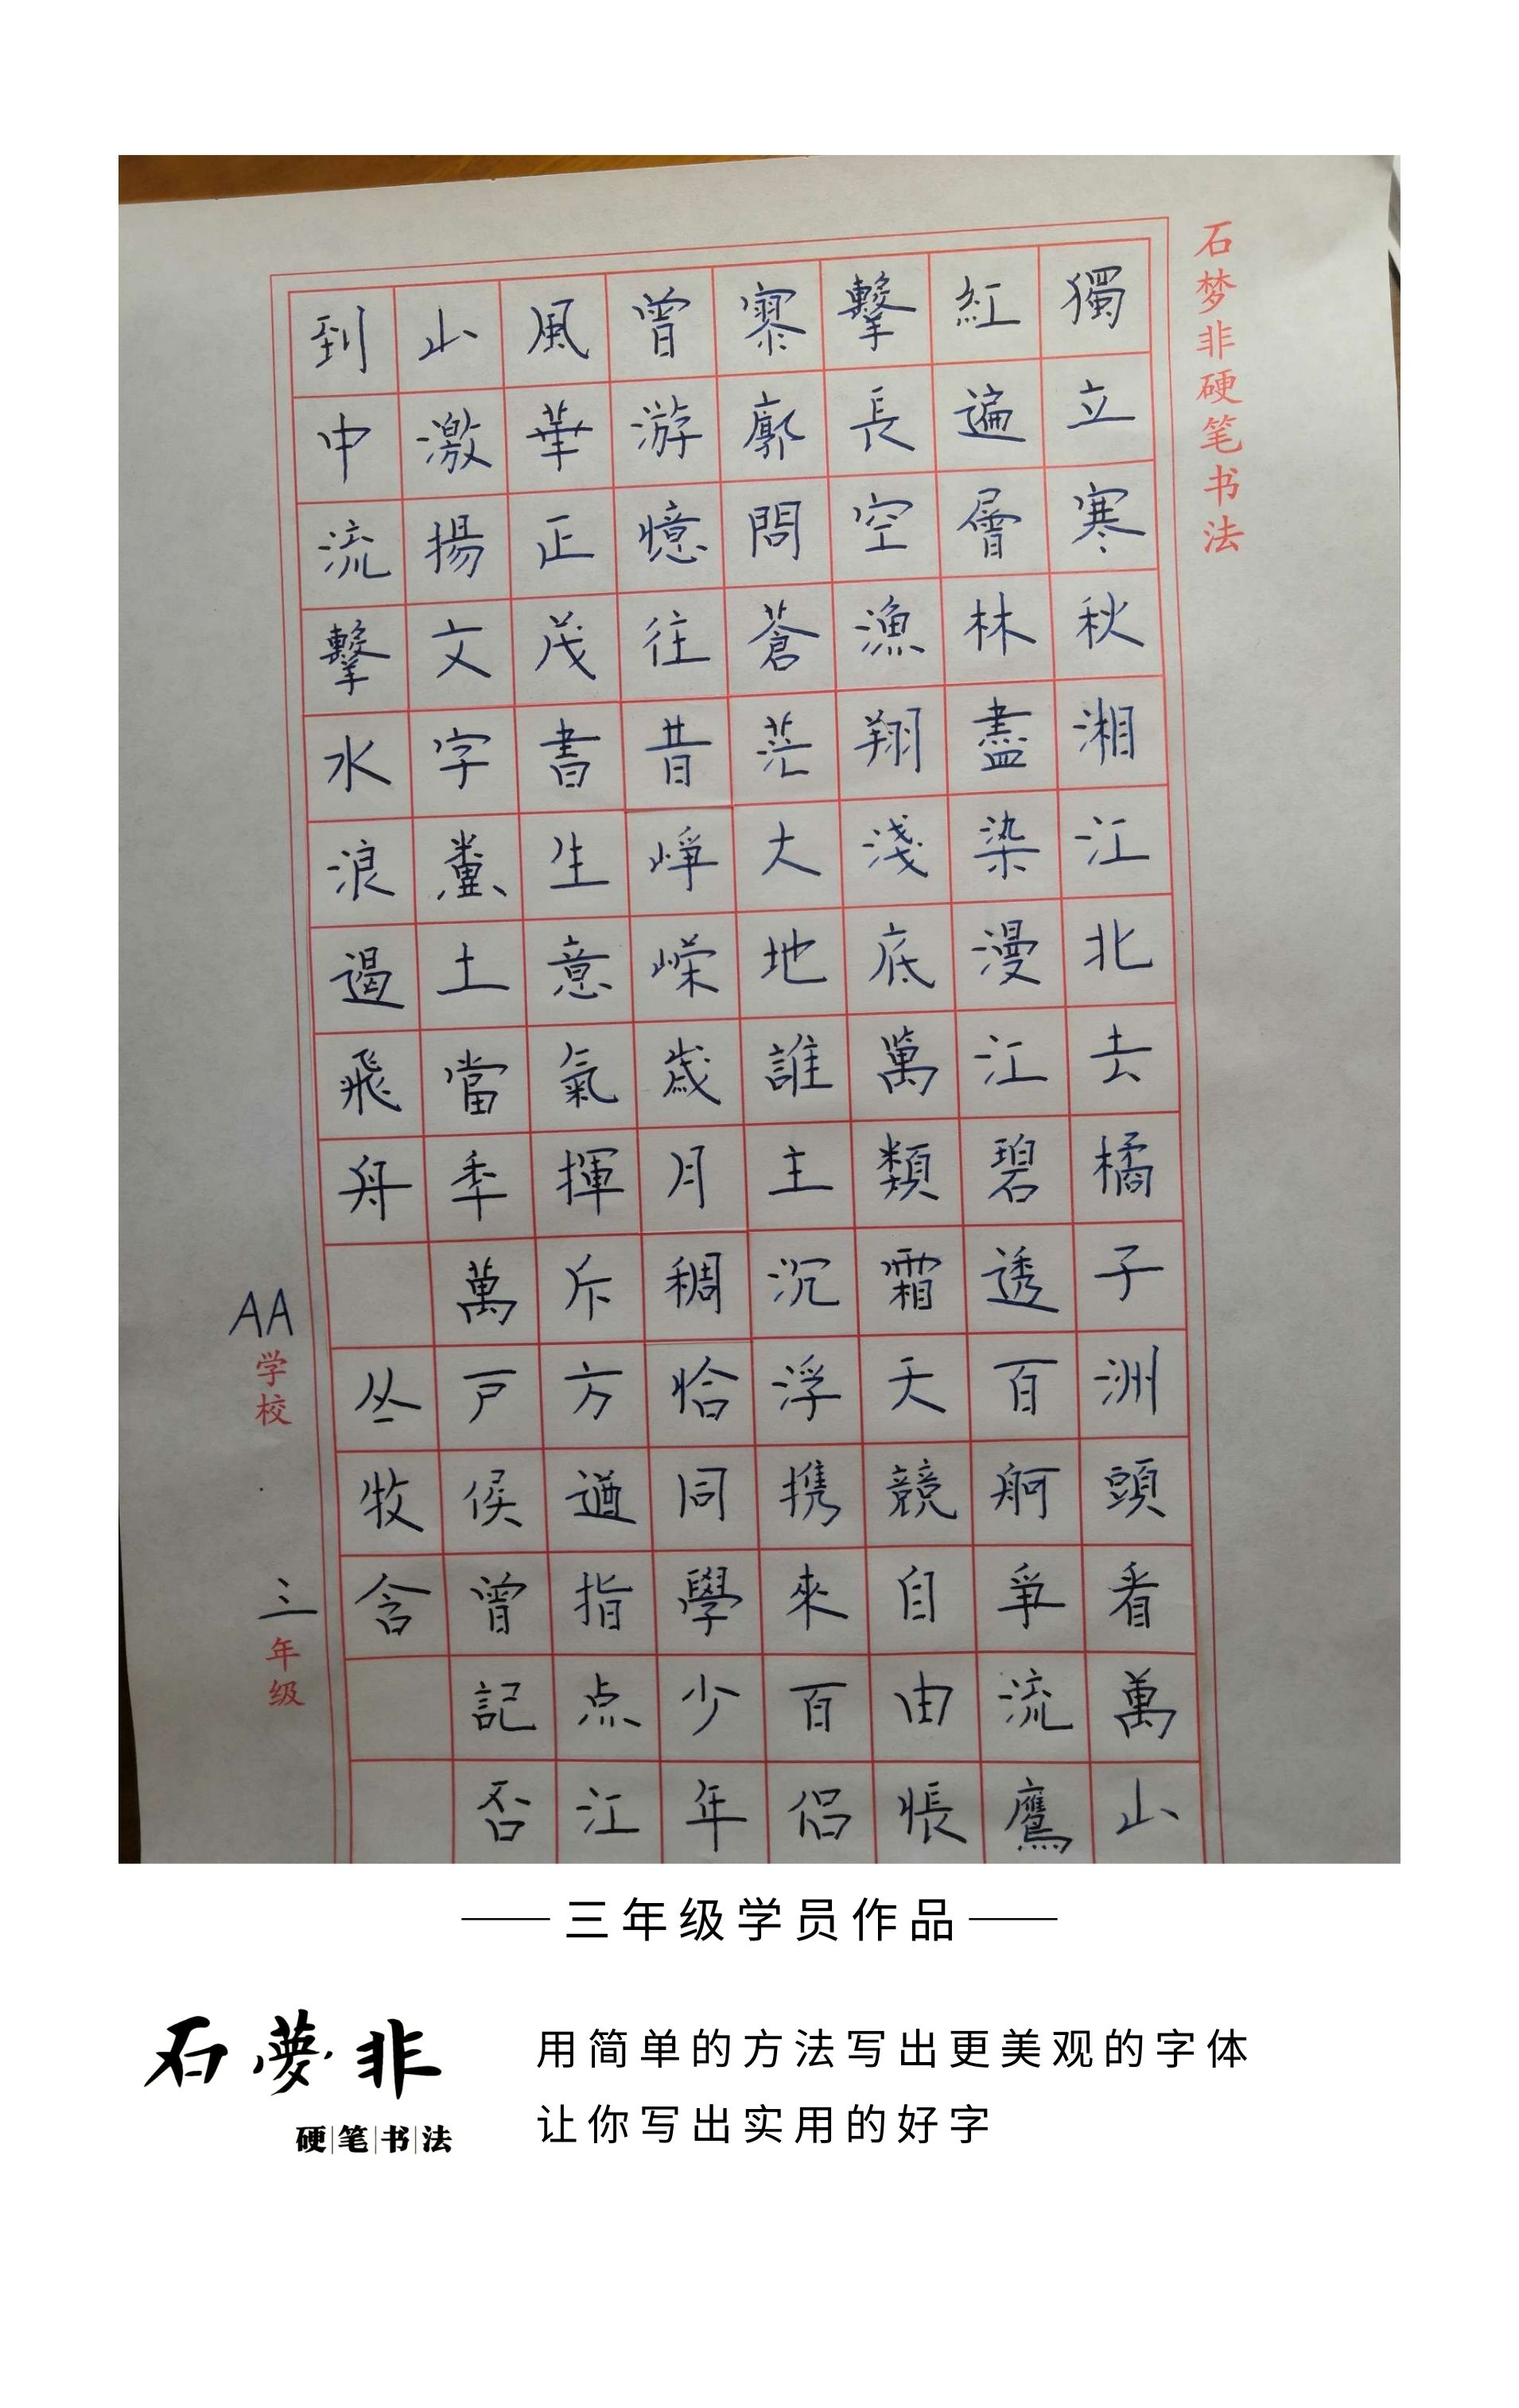 石梦非硬笔书法
獨立寒秋湘江北去橘子洲頭看萬山
紅遍層林盡染漫江碧透百舸爭流鷹
擊長空漁翔淺底萬類霜天競自由悵
寥廓問蒼茫大地誰主沉浮携來百侣
曾游憶往昔崢嶸歲月稠恰同學少年
風華正茂書生意氣揮斥方遒指点江
山激揚文字糞土當年萬户侯曾記否
到中流擊水浪遏飛舟
丛牧含
AA学校
三年级
三年级学员作品
石夢非
硬笔书法
用简单的方法写出更美观的字体
让你写出实用的好字